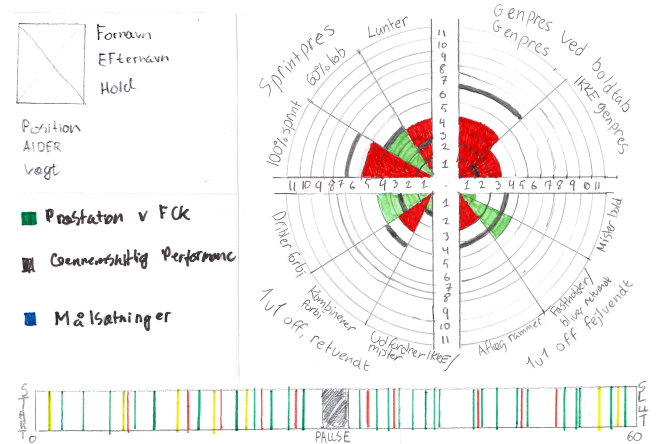 Fornavn
Efternavn
Hold
Position
Alder
Vægt
Præstation v FCK
Gennemsnitlig Performance
Målsætninger
Sprintpres
60% løb
Lunter
100% sprint
Genpres ved boldtab
Genpres
IKKE genpres
11
10
9
8
7
6
5
4
3
2
1
11 10 9 8 7 6 5 4 3 2 1
1 2 3 4 5 6 7 8 9 10 11
1
2
3
4
5
6
7
8
9
10
11
Dribler forbi
Kombinerer forbi
Udfordrer IKKE/
mister
1v1 off, retvendt
Mister bold
Fastholder/
bliver retvendt
Aflæg rammer
1v1 off fejlvendt
START
0
PAUSE
SLUT
60